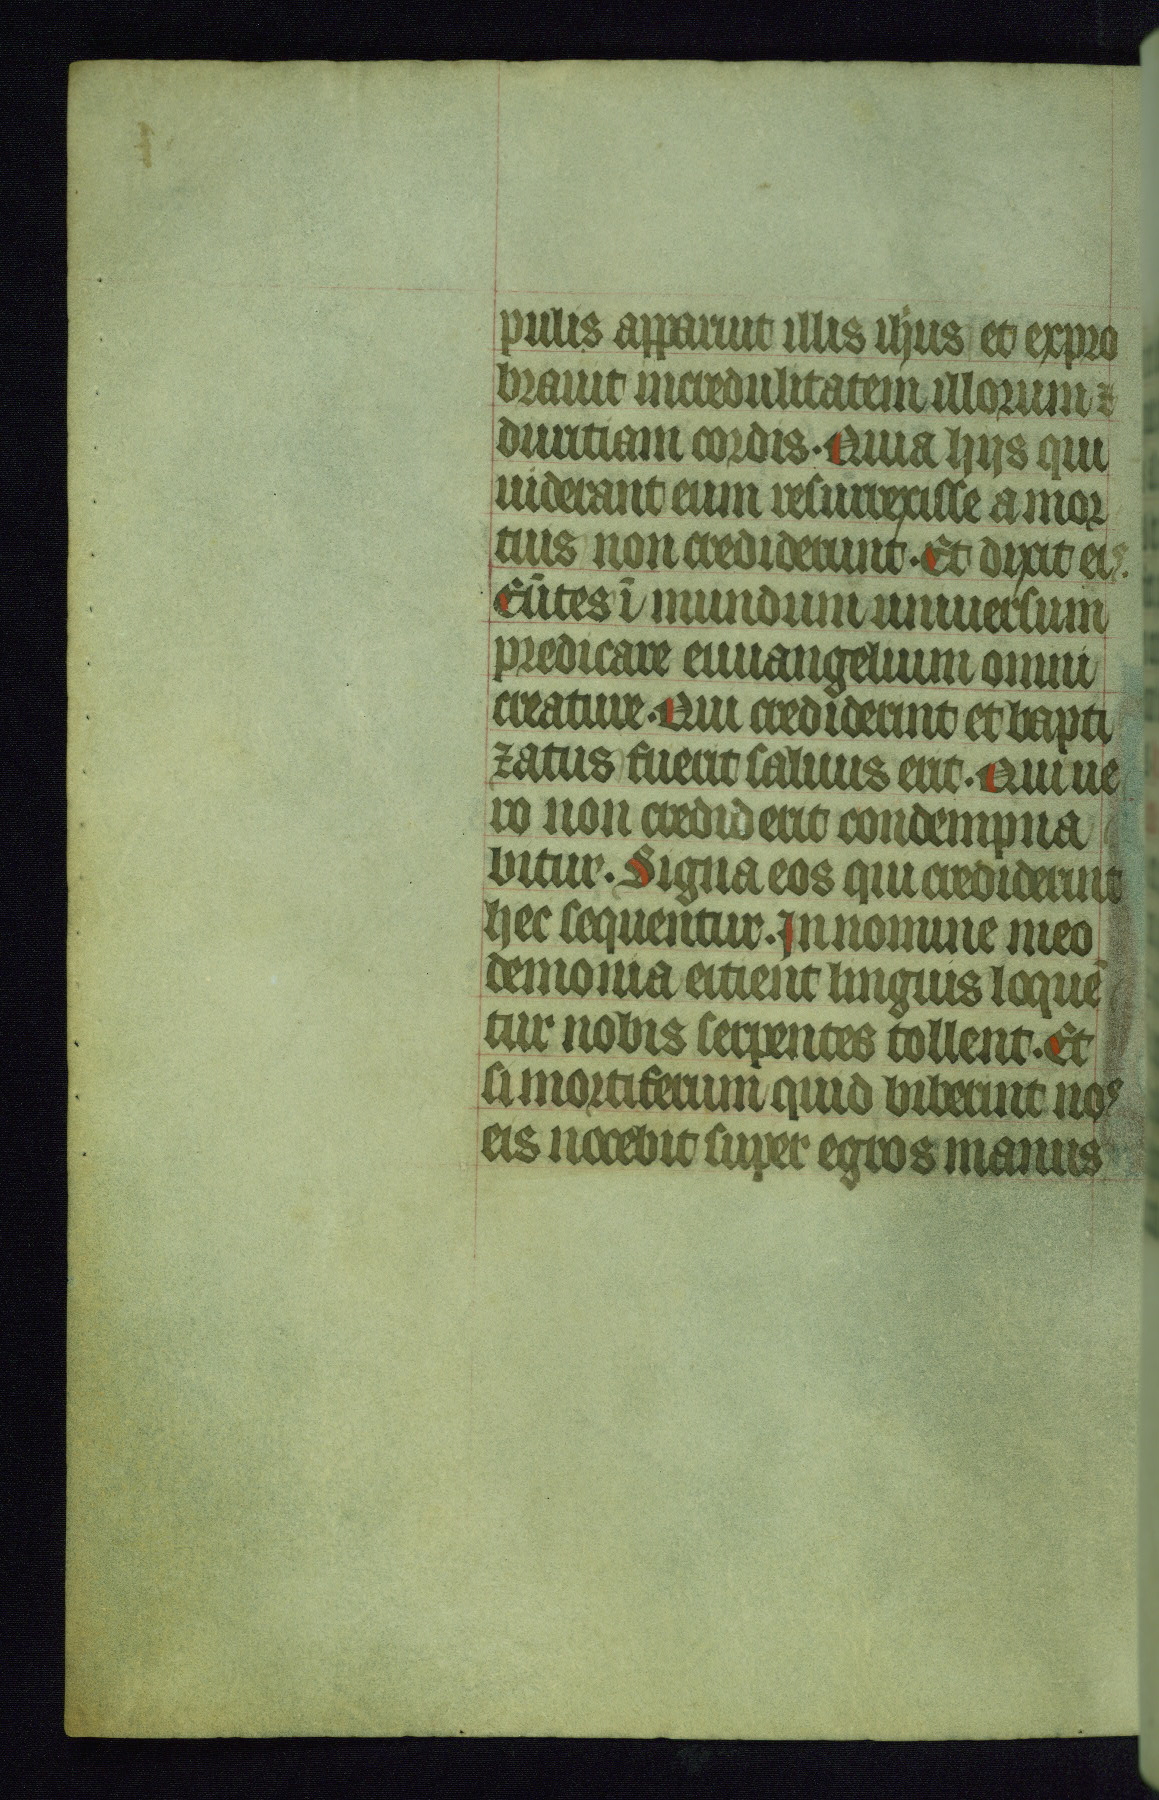 pulis apparuit illis ihus et expro
brauit incredulitatem illorum ⁊
duritiam cordis. Quia hijs qui
uiderant eum resurrexisse a mor
tuis non crediderunt. Et dixit eis.
Eūtes ī mundum uniuersum
predicare euuangelium omni
creature. Qui crediderint et bapti
zatus fuerit saluus erit. Qui ue
ro non crediderit condempna
bitur. Signa eos qui crediderint
hec sequentur. In nomine meo
demonia eitient linguis loquē
tur nobis serpentes tollent. Et
si mortiferum quid biberint nos
eis nocebit super egros manus